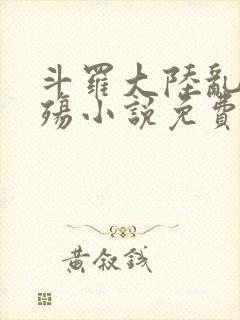 斗羅大陸亂
殤小說免費
黃敘錢